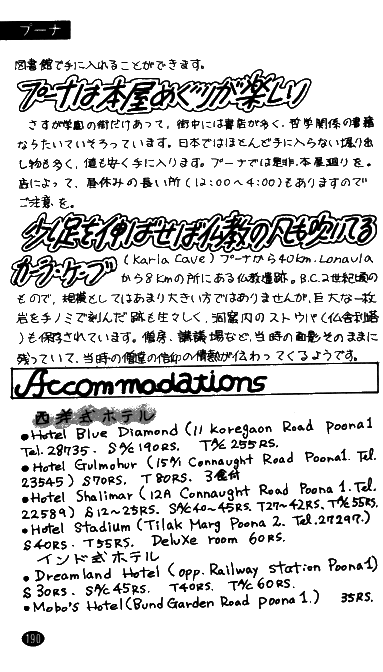 プーナ
図書館で手に入れることができます。
プーナは本屋めぐりが楽しい
さすが学園の街だけあって、街中には書店が多く、哲学関係の書籍
ならたいていそろっています。日本ではほとんど手に入らない掘り出
し物も多く、値も安く手に入ります。プーナでは是非、本屋廻りを。
店によって、昼休みの長い所(12:00~4:00)もありますので
ご注意を。
少し足を伸ばせば仏教の风も吹いてる
カーラ・ケーブ
(Karla Cave) プーナから40km. Lonaula
から8Kmの所にある仏教遺跡。B.C.2世紀頃の
もので、規模としてはあまり大きい方ではありませんが、巨大な一枚
岩をチノミで刻んだ跡も生々しく、洞窟内のストウパ(仏舎利塔
)も保存されています。僧房、講議場など、当時の面影そのままに
残っていて、当時の僧達の信仰の情熱が伝わってくるようです。
Accommodations
西洋式ホテル
●Hotel Blue Diamond (11 koregaon Road poona1
Tel. 28735. S A/c 190RS. T A/c 255RS.
●Hotel Gulmohur (15A/1 Connaught Road Poona1. Tel.
23545) S70RS. T 80RS. 3食付
●Hotel Shalimar (12A Connaught Road Poona 1. Tel.
22589) S 12~25RS. S A/c 40~45RS. T27~42RS. T A/c 55RS.
●Hotel Stadium (Tilak Marg Poona 2. Tel.27297.)
S 40RS. T 55RS. Deluxe room 60RS.
インド式ホテル
●Dreamland Hotel (opp. Railway station Poona1)
S 30RS. S A/c 45RS. T40RS. T A/c 60RS.
●Mobo's Hotel (Bund Garden Road poona 1.) 35RS.
190